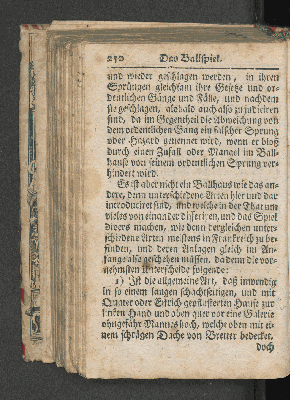 250 Das Ballspiel.
und wieder geschlagen werden, in ihren
Sprüngen gleichsam ihre Gesetze und or-
dentlichen Gänge und Fälle, und nachdem
sie geschlagen, alsbald auch also zu judiciren
sind, da im Gegentheil die Abweichung von
dem ordentlichen Gang ein falscher Sprung
oder Hazard genennet wird, wenn er bloß
durch einen Zufall oder Mangel im Ball-
hause von seinem ordentlichen Sprung ver-
hindert wird.
Es ist aber nicht ein Ballhaus wie das an-
dere, denn unterschiedene Arten hier und dar
introduciret sind, und welche in der That um
vieles von einander differiren, und das Spiel
divers machen, wie denn dergleichen unter-
schiedene Arten meistens in Franckreich zu be-
finden, und deren Anlagen gleich im An-
fange also geschehen müssen, da denn die vor-
nehmsten Unterscheide folgende:
1) Ist die allgemeine Art, daß inwendig
in so einem langen schachtseitigen, und mit
Quater oder Estrich gepflasterten Hause zur
lincken Hand und oben quer vor eine Galerie
ohngefähr Mannes hoch, welche oben mit ei-
nem schrägen Dache von Bretter bedecket,
doch